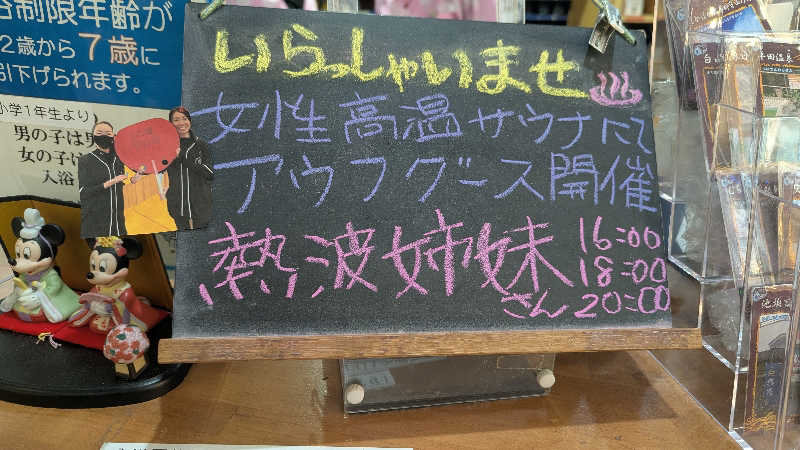 制限年齢が
2歳から7歳に
引下げられます。
小学1年生より
男の子は
女の子は
入浴
いらっしゃいませ♨
女性高温サウナにて
アウフグース開催
熱波姉妹
さん
16:00
18:00
20:00